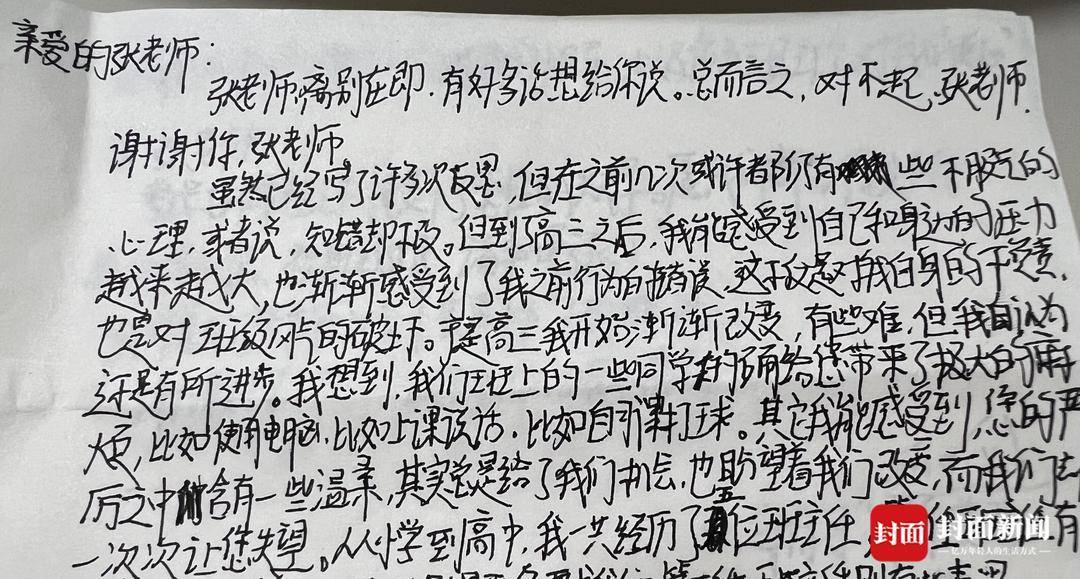 亲爱的张老师：
张老师，离别在即，有好多话想给你说。总而言之，对不起，张老师，
谢谢你，张老师
虽然已经写了许多次反思，但在之前几次或许都仍有一些不服气的
心理，或者说，知错却不改。但到了高三之后，我能感受到自己和身边的压力
越来越大，也渐渐感受到了我之前行为的错误，这不仅是对我自身的不负责，
也是对班级风气的破坏。高三我开始渐渐改变，有些难，但我自认为
还是有所进步。我想到，我们班上的一些同学的确给您带来了极大的麻
烦，比如使用电脑，比如上课说话，比如自习课打球。其它我能感受到，您的严
厉之中包含有一些温柔，其实总是给了我们机会，也盼望着我们改变，而我们却
一次次让您失望。从小学到高中，我一共经历了五位班主任，
封面
封面新闻
亿万年轻人的生活方式